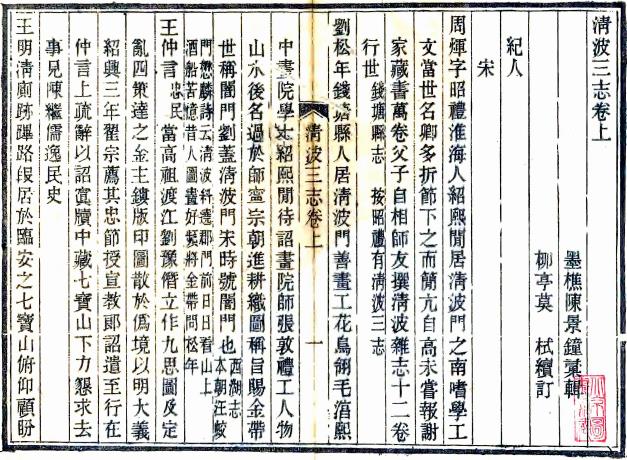 淸波三志卷上
墨樵陳景鐘彙輯
柳亭莫 栻續訂
紀人
宋
周煇字昭禮淮海人紹熙閒居淸波門之南嗜學工
文當世名卿多折節下之而簡亢自高未嘗報謝
家藏書萬卷父子自相師友撰淸波雜志十二卷
行世 錢塘縣志 按昭禮有淸波三志
劉松年錢塘縣人居淸波門善畫工花鳥翎毛淳熙
淸波三志卷上 一
中畫院學士紹熙閒待詔畫院師張敦禮工人物
山水後名過於師寧宗朝進耕織圖稱旨賜金帶
世稱闇門劉蓋淸波門宋時號闇門也 西湖志 本朝汪蛟
門懋麟詩云淸波斜遶郡門前日日看山上
酒船苦憶昔人圖畫好須將金帶問松年
王仲言 忠民 當高祖渡江劉豫僭立作九思圖及定
亂四策達之金主鏤版印圖散於僞境以明大義
紹興三年翟宗薦其忠節授宣教郞詔遣至行在
仲言上疏辭以詔寘牘中藏七寶山下力懇求去
事見陳繼儒逸民史
王明淸廟跡蹕路居於臨安之七寶山俯仰顧盼